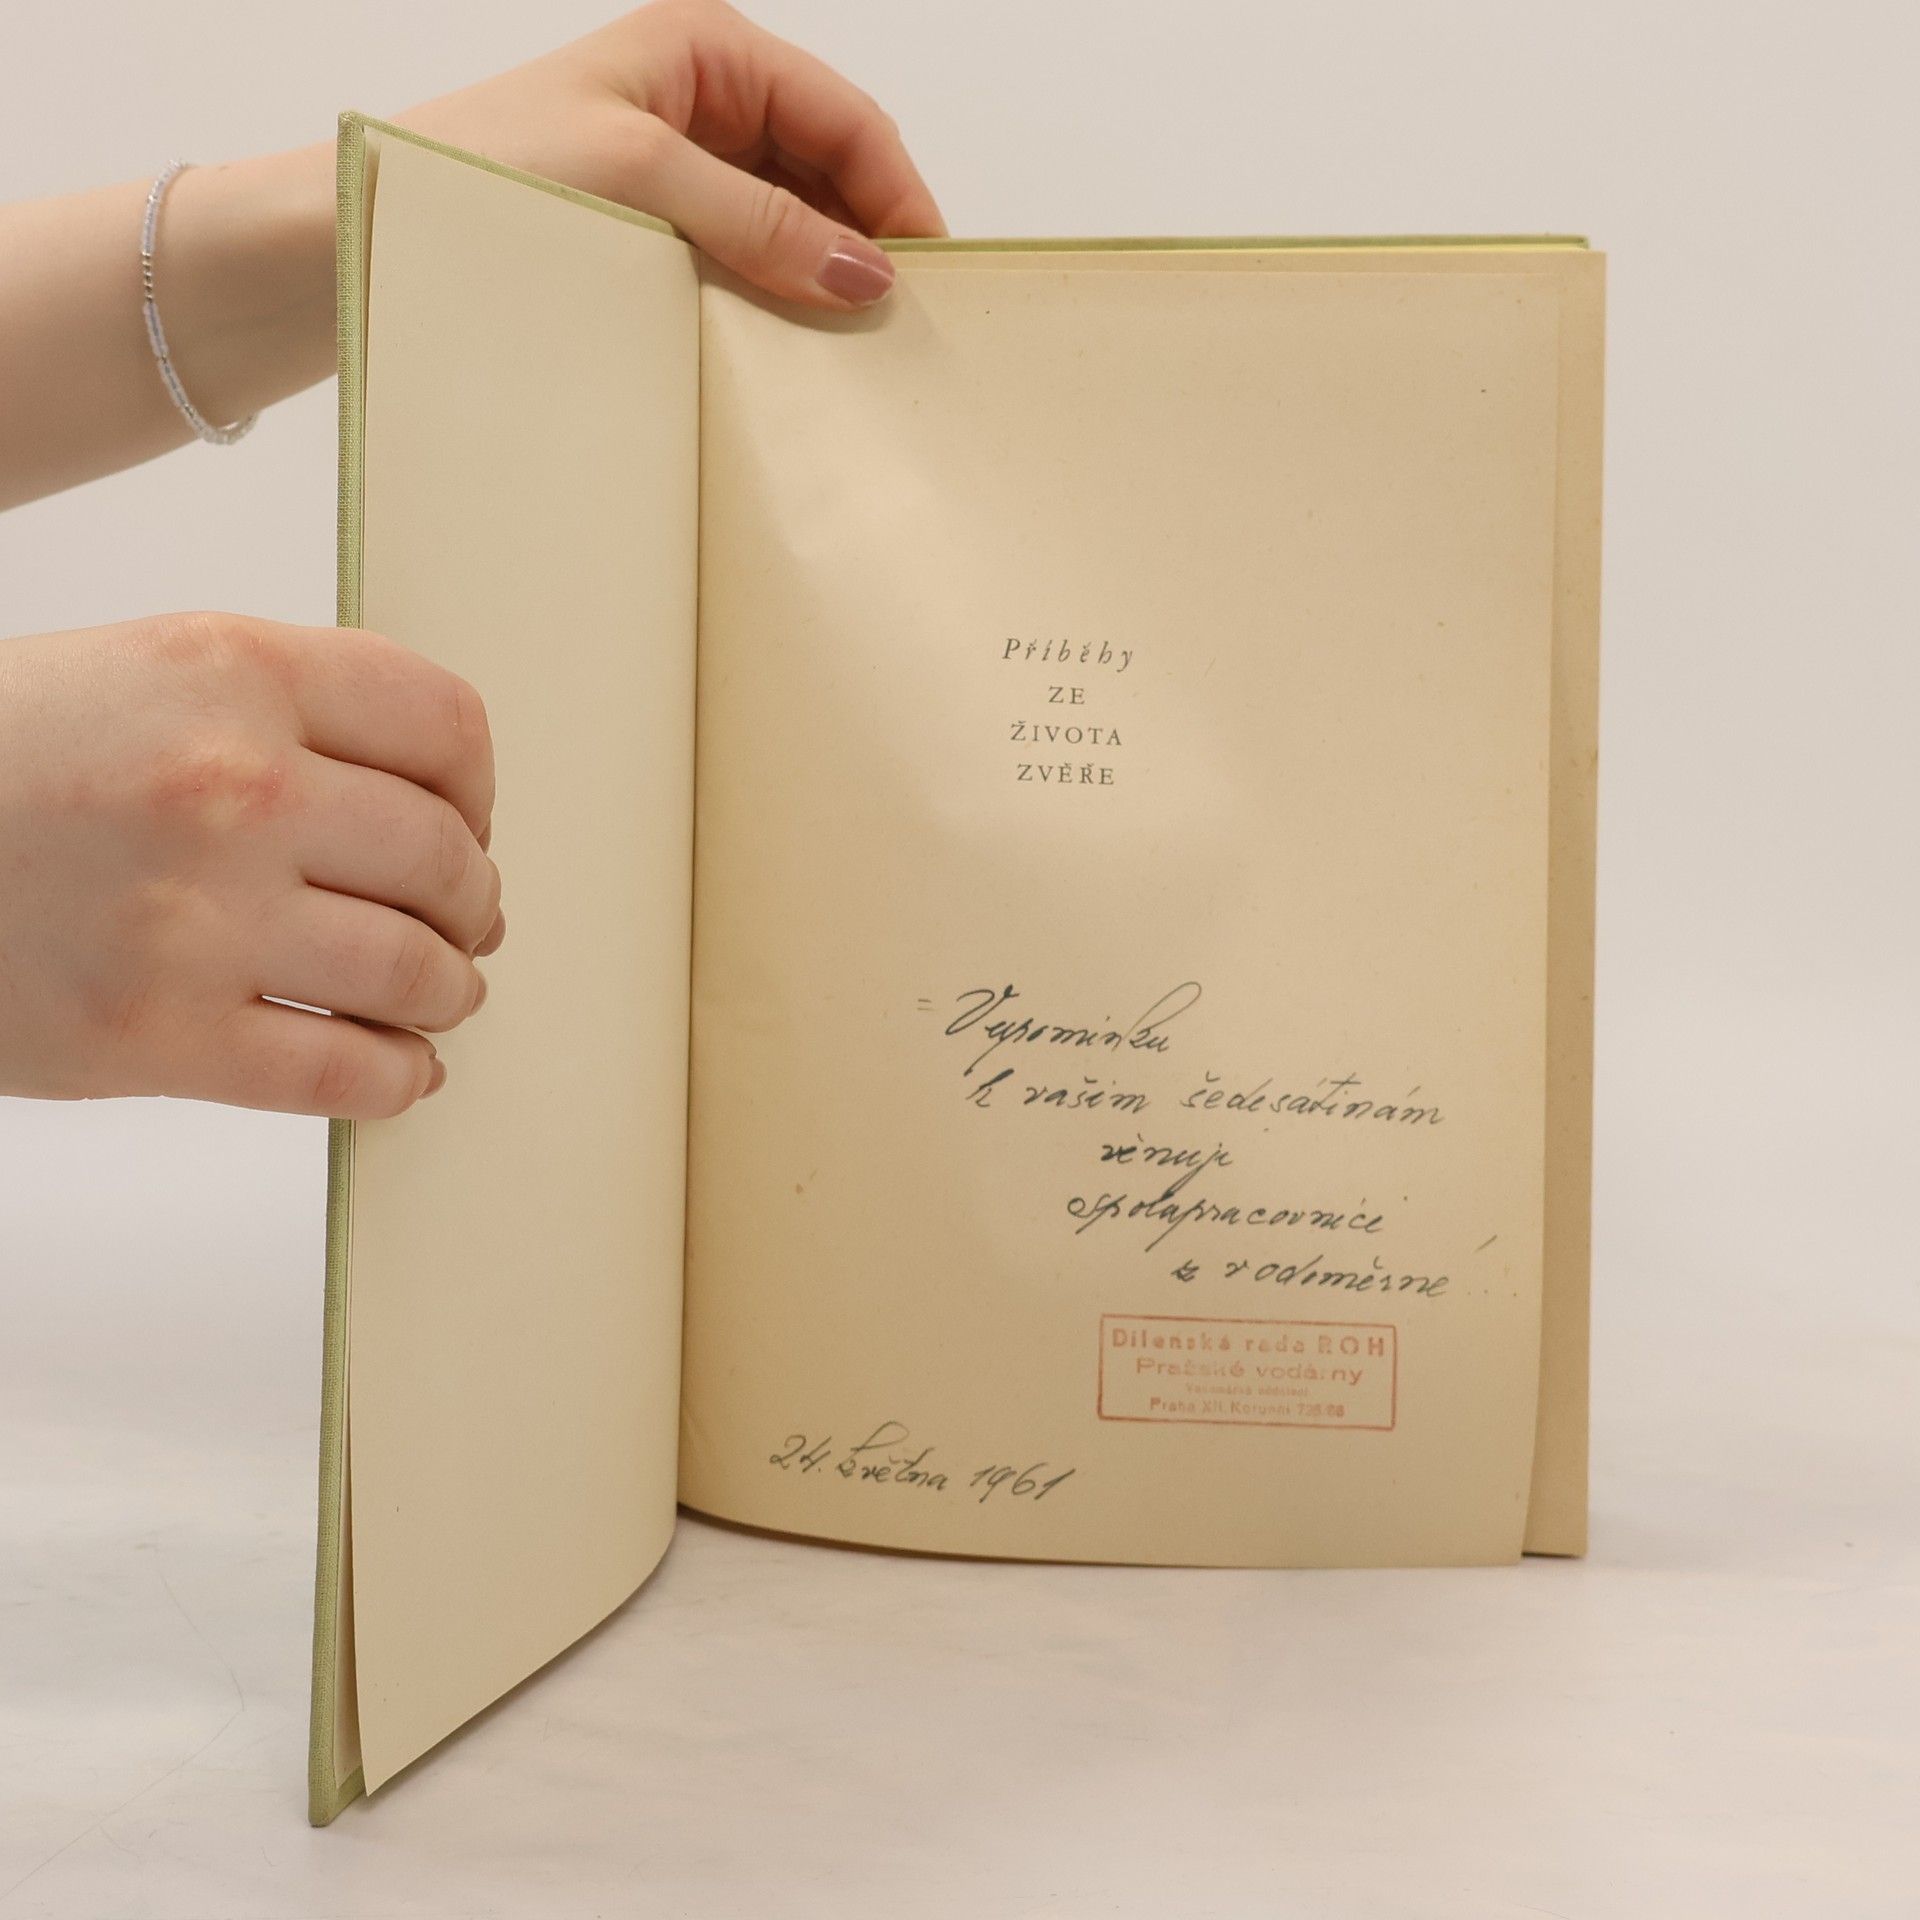 Příběhy
ZE
ŽIVOTA
ZVĚŘE
= Vzpomínku
k vašim šedesátinám
věnují
spolupracovníci
z vodoměrné
Dílenská rada ROH
Pražské vodárny
Praha XII, Korunní
24. května 1961